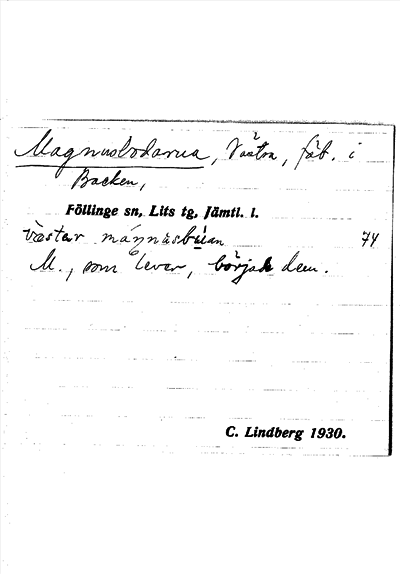 Magnusbodarna, Västra, fäb. i
Backen,
Föllinge sn, Lits tg, Jämtl. l.
västar 74
M., som lever, började dem.
C. Lindberg 1930.